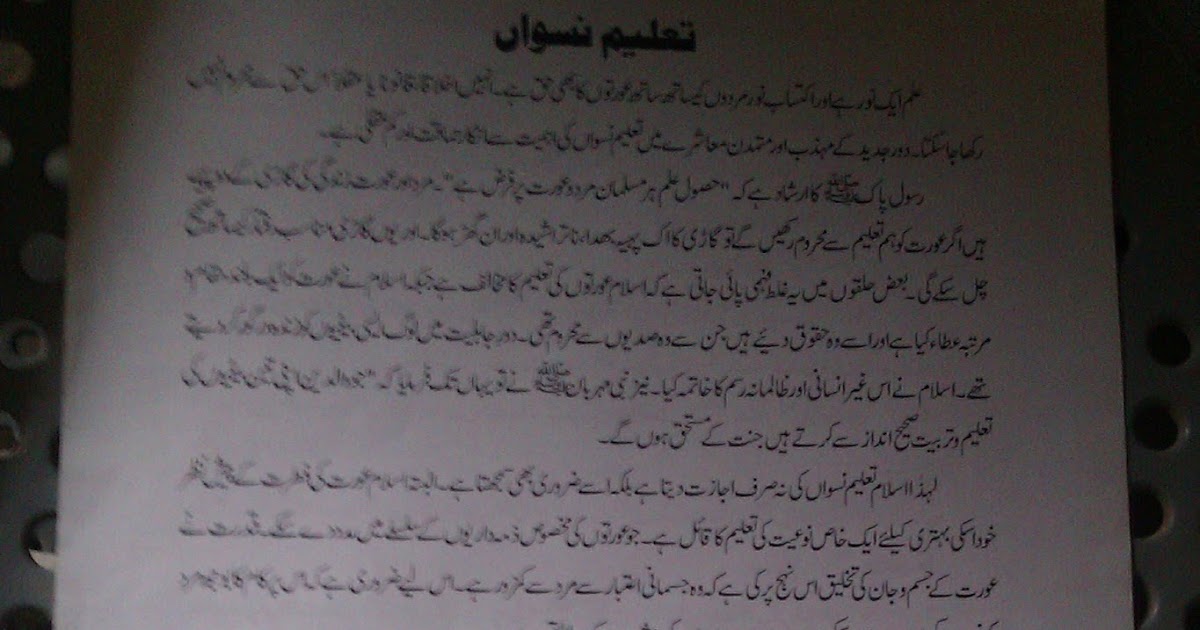 تعلیم نسواں
علم ایک نور ہے اور اکتساب نور مردوں کیساتھ ساتھ عورتوں کا بھی حق ہے۔ انہیں اخلاقا، قانونا یا عقلا اس حق سے محروم نہیں
رکھا جا سکتا۔ دور جدید کے مہذب اور متمدن معاشرے میں تعلیم نسواں کی اہمیت سے انکار حماقت اور کم عقلی ہے۔
رسول پاک ﷺ کا ارشاد ہے کہ "حصول علم ہر مسلمان مرد و عورت پر فرض ہے"۔ مرد اور عورت زندگی کی گاڑی کے دو پہیے
ہیں اگر عورت کو ہم تعلیم سے محروم رکھیں گے تو گاڑی کا اک پہیہ بھدا، ناتراشیدہ اور ان گھڑ ہوگا۔ اور یوں گاڑی مناسب رفتار کیساتھ نہیں
چل سکے گی۔ بعض حلقوں میں یہ غلط فہمی پائی جاتی ہے کہ اسلام عورتوں کی تعلیم کا مخالف ہے جبکہ اسلام نے عورت کو ایک بلند مقام و
مرتبہ عطاء کیا ہے اور اسے وہ حقوق دئیے ہیں جن سے وہ صدیوں سے محروم تھی۔ دور جاہلیت میں لوگ اپنی بیٹیوں کو زندہ درگور کر دیتے
تھے۔ اسلام نے اس غیر انسانی اور ظالمانہ رسم کا خاتمہ کیا۔ نیز نبی مہربان ﷺ نے تو یہاں تک فرمایا کہ "جو والدین اپنی تین بیٹیوں کی
تعلیم و تربیت صحیح انداز سے کرتے ہیں جنت کے مستحق ہوں گے۔
لہذا اسلام تعلیم نسواں کی نہ صرف اجازت دیتا ہے بلکہ اسے ضروری بھی سمجھتا ہے۔ البتہ اسلام عورت کی فطرت کے پیش نظر
خود اسکی بہتری کیلئے ایک خاص نوعیت کی تعلیم کا قائل ہے۔ جو عورتوں کی مخصوص ذمہ داریوں کے سلسلے میں مدد دے سکے۔ قدرت نے
عورت کے جسم و جان کی تخلیق اس نہج پر کی ہے کہ وہ جسمانی اعتبار سے مرد سے کمزور ہے۔ اس لیے ضروری ہے کہ اس پر کام کا بوجھ مرد